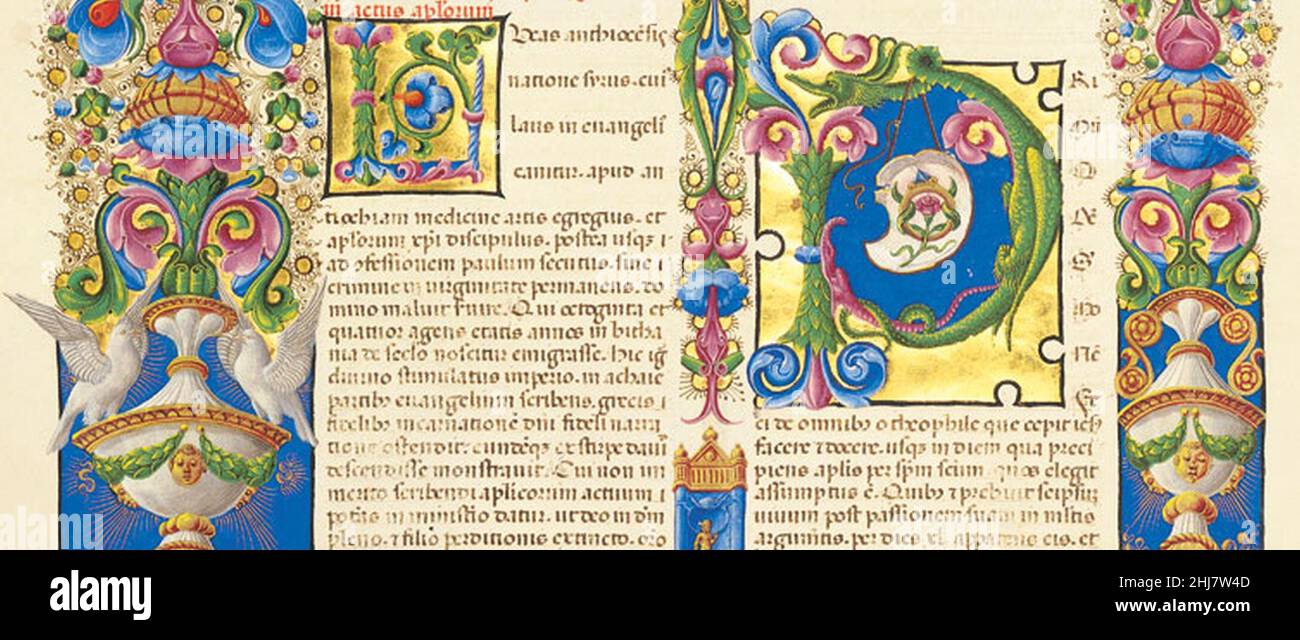 in actus aplorum
Ucas anthiocēsis
natione syrus. cui'
laus in euangeli
canitur. apud an
tiochiam medicine artis egregius. et
aplorum xpi discipulus. postea usqz
ad ꝯfessionem paulum secutus. sine
crimine in uirginitate permanens. do
mino maluit seruire. Qui octoginta et
quattuor agens etatis annos in bitha
nia de seclo noscitur emigrasse. hic igr
diuino stimulatus imperio. in achaie
partibꝰ euangelium scribens. grecis
fidelibꝰ incarnationē dni fideli narra
tione ostendit. eundēqz ex stirpe dauit
descendisse monstrauit. Cui non im
merito scribendi aplicorum actuum
potās in ministio datur. ut deo in dm
pleno. ⁊ filio perditionis extincto. oro
RI
DE
ci de omnibꝰ o theophile que cepit ieh
facere ⁊ docere. usqs in diem qua preci
piens aplis per spm scum. quos elegit
assumptus ē. Quibꝰ ⁊ prebuit seipsum
uiuum post passionem suam in multis
argumtis. per dies xl. apparens eis. et
alamy
Image ID: 2HJ7W4D
www.alamy.com